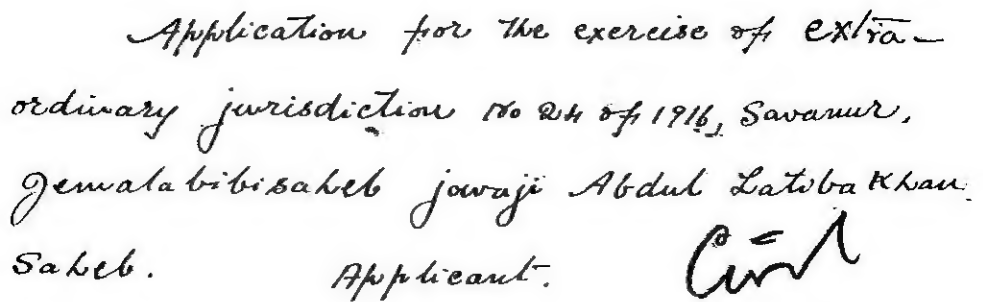 Application for the exercise of extra-
ordinary jurisdiction No 24 of 1916, Savanur.
Jemalabibisaheb javaji Abdul Latibakhan
Saheb. Applicant. Civil